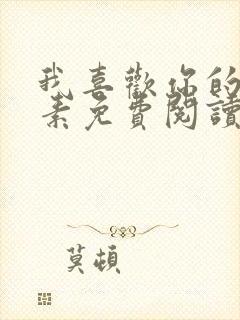 我喜歡你的
素免費閱讀
莫頓